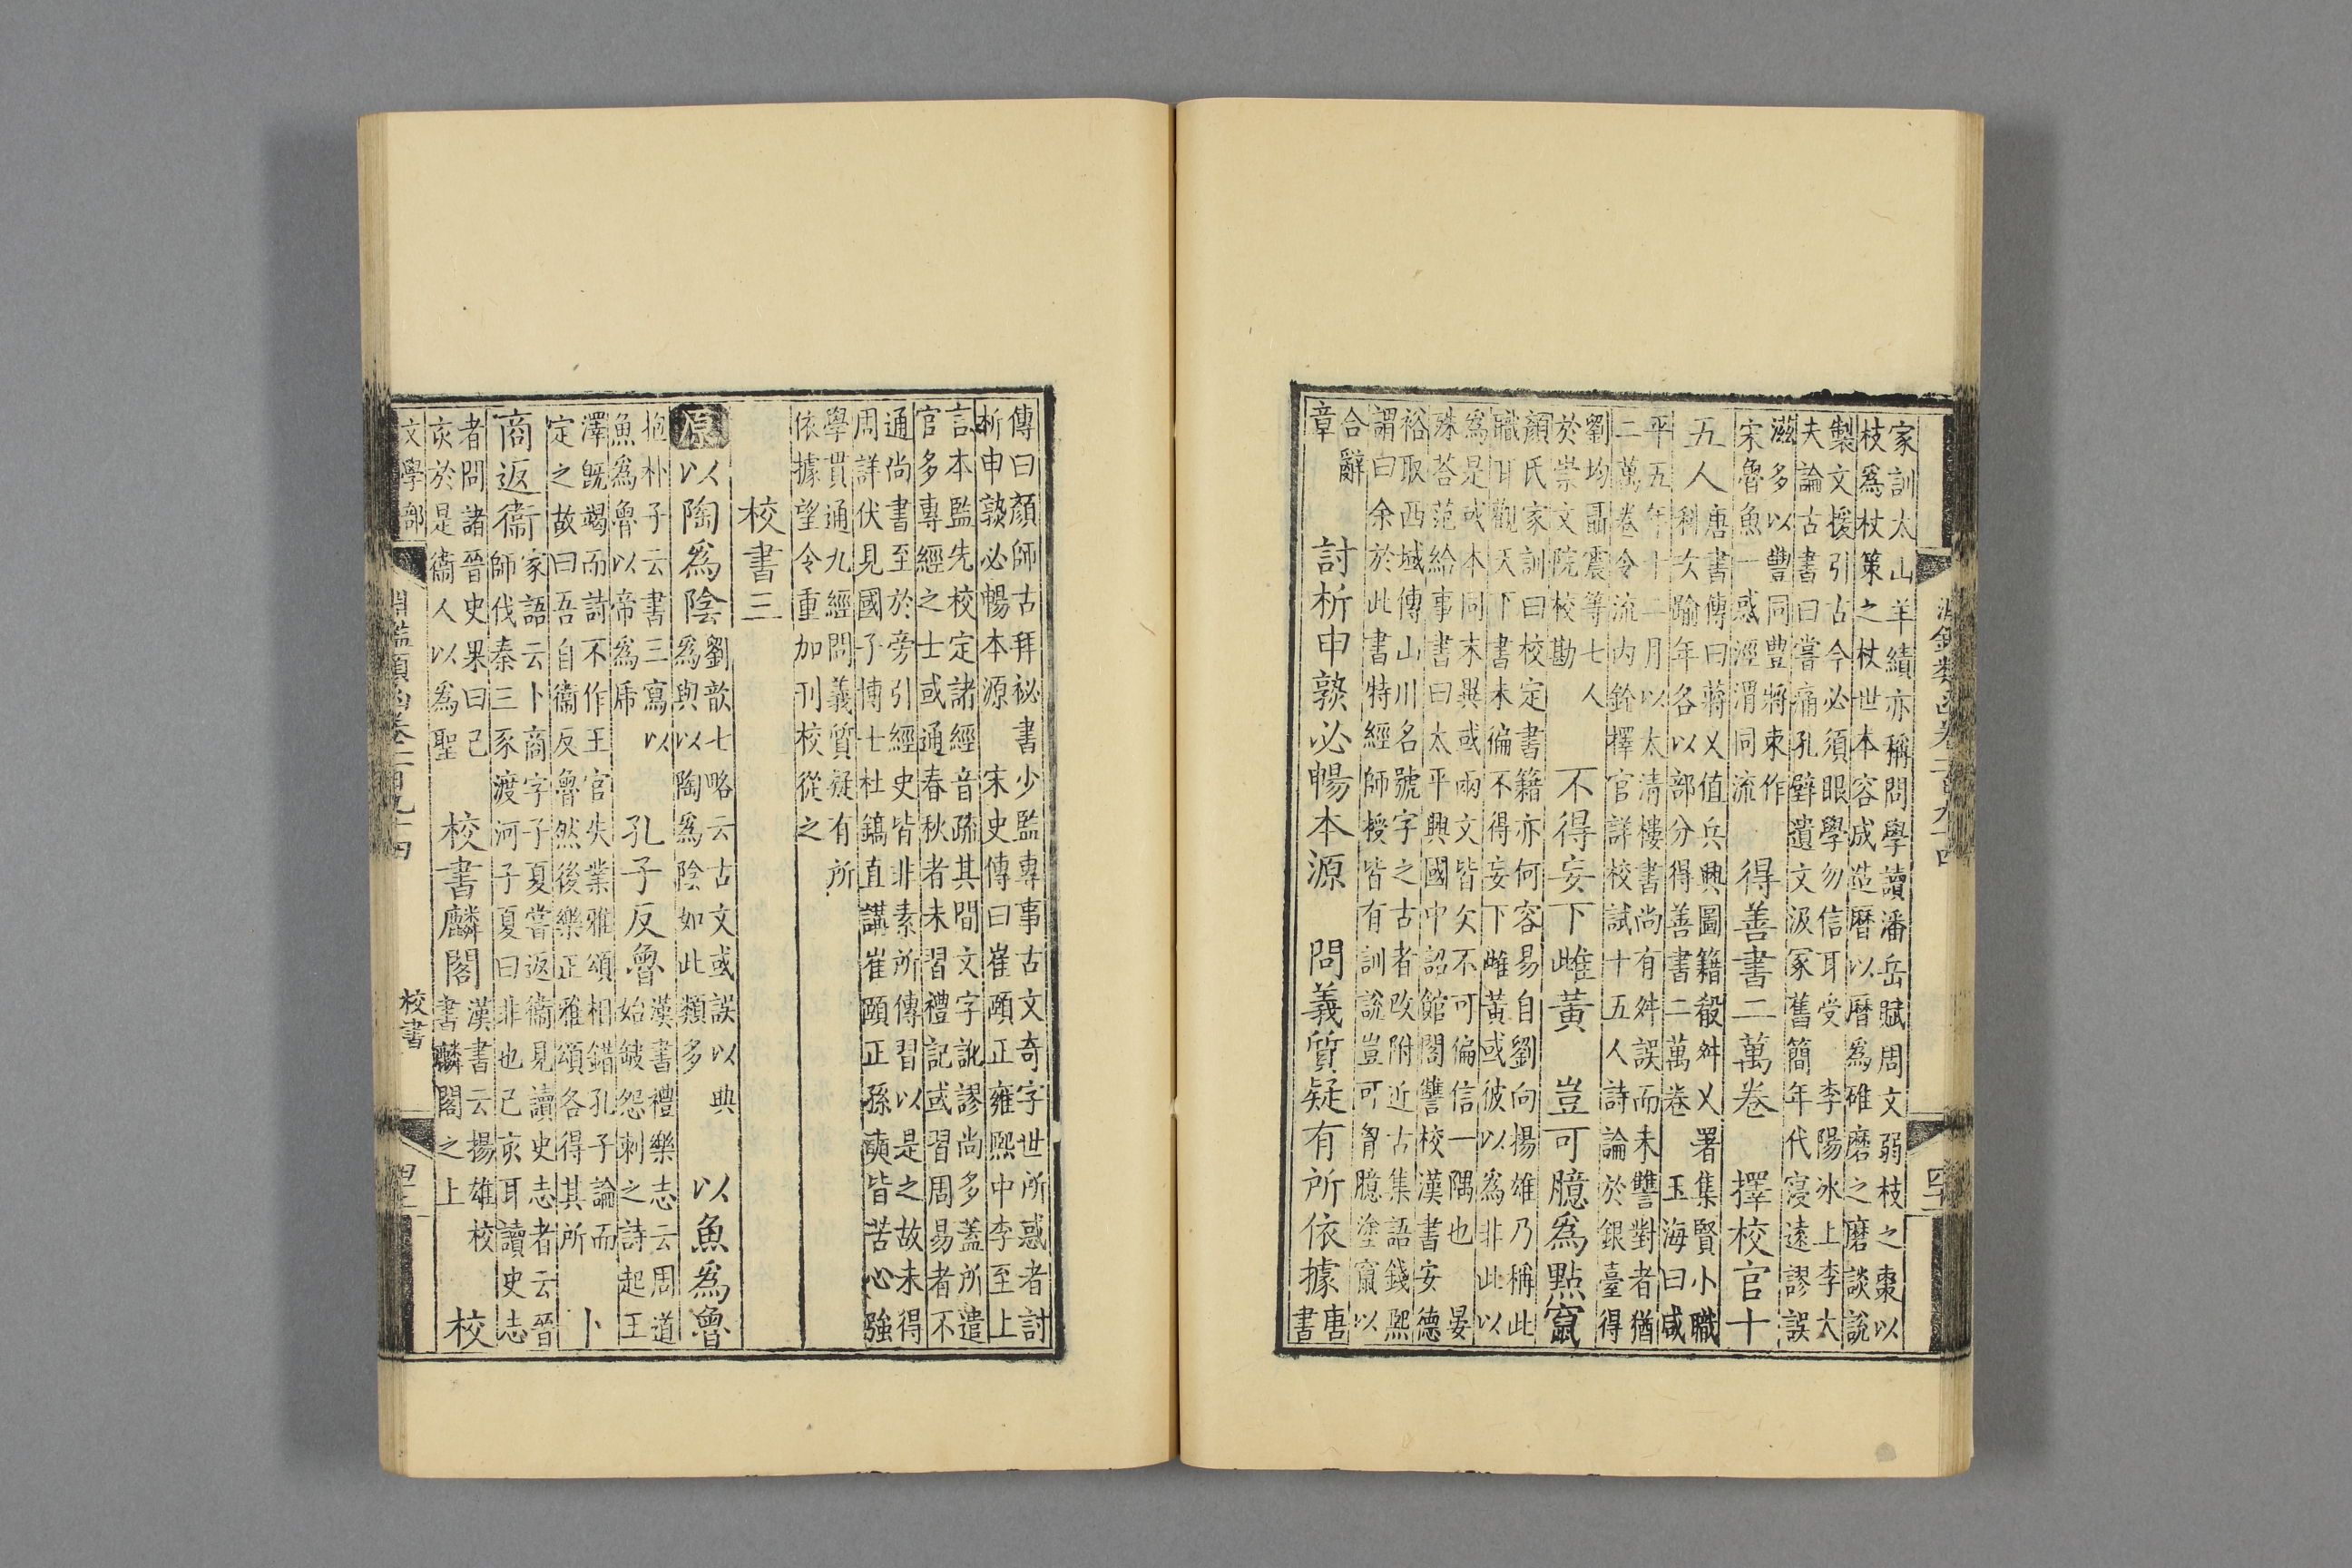 淵鑑類函卷一百九十四
家訓太山羊績亦稱問學讀潘岳賦周文弱枝之棗以
枝爲杖策之杖世本容成造曆以曆爲碓磨之磨談說
製文援引古今必須眼學勿信耳受 李陽冰上李大
夫論古書曰嘗痛孔壁遺文汲冢舊簡年代寖遠謬誤
滋多以豐同豊將朿作
宋魯魚一惑涇渭同流
得善書二萬卷 擇校官十
五人
唐書傳曰蔣乂值兵興圖籍殽舛乂署集賢小職
料次踰年各以部分得善書二萬卷 玉海曰咸
平五年十二月以太清樓書尚有舛誤而未讐對者猶
二萬卷令流內銓擇官詳校試十五人詩論於銀臺得
劉均聶震等七人
於崇文院校勘
不得妄下雌黃 豈可臆爲點竄
顏氏家訓曰校定書籍亦何容易自劉向揚雄乃稱此
職耳觀天下書未徧不得妄下雌黃或彼以爲非此以
爲是或本同末異或兩文皆欠不可偏信一隅也 晏
殊荅范給事書曰太平興國中詔館閣讐校漢書安德
裕取西域傳山川名號字之古者改附近古集語錢熙
謂曰余於此書特經師授皆有訓說豈可胷臆塗竄以
合辭
章
討析申敦必暢本源 問義質疑有所依據
唐
書
傳曰顏師古拜祕書少監專事古文奇字世所惑者討
析申敦必暢本源 宋史傳曰崔頤正雍熙中李至上
言本監先校定諸經音疏其間文字訛謬尚多蓋所遣
官多專經之士或通春秋者未習禮記或習周易者不
通尚書至於旁引經史皆非素所傳習以是之故未得
周詳伏見國子博士杜鎬直講崔頤正孫奭皆苦心強
學貫通九經問義質疑有所
依據望令重加刊校從之
校書三
原 以陶爲陰
劉歆七略云古文或誤以典
爲與以陶爲陰如此類多
以魚爲魯
抱朴子云書三寫以
魚爲魯以帝爲虎
孔子反魯
漢書禮樂志云周道
始缺怨刺之詩起王
澤旣竭而詩不作王官失業雅頌相錯孔子論而
定之故曰吾自衞反魯然後樂正雅頌各得其所
卜
商返衞
家語云卜商字子夏嘗返衞見讀史志者云晉
師伐秦三豕渡河子夏曰非也己亥耳讀史志
者問諸晉史果曰己
亥於是衞人以爲聖
校書麟閣
漢書云揚雄校
書麟閣之上
校
文學部
淵鑑類函卷一百九十四
校書